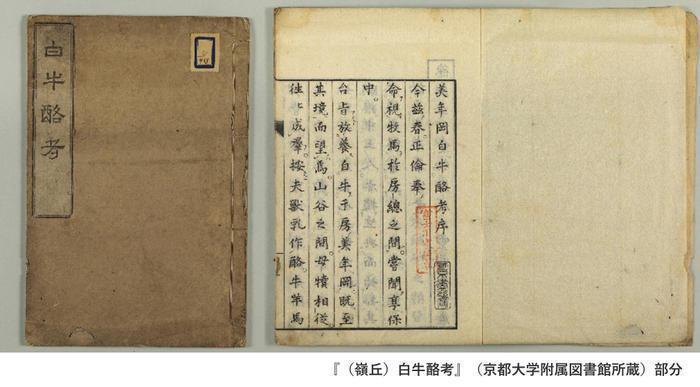 白牛酪考
美年岡白牛酪考序
今茲春正倫奉
命視牧馬於房總之間嘗聞享保
中。
台旨放養白牛于房美年岡既至
其境而望焉山谷之間母犢相從
往成羣按夫獸乳作酪牛馬
『（嶺丘）白牛酪考』（京都大学附属図書館所蔵）部分